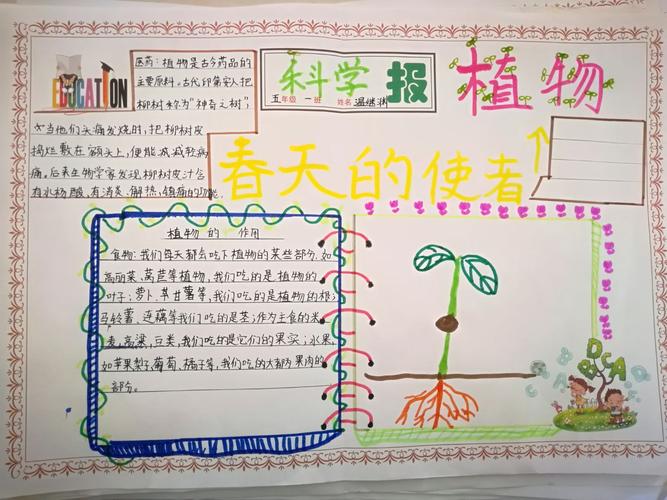 EDUCATION
医药：植物是古今药品的
主要原料。古代印第安人把
柳树称为“神奇之树”
当他们头痛发烧时，把柳树皮
捣烂敷在额头上，便能减轻病
痛。后来生物学家发现柳树皮汁含
有水杨酸，有消炎、解热、镇痛的功能
科学报
五年级 一班 姓名
植物
春天的使者
植物的作用
食物：我们每天都会吃下植物的某些部分，如
高丽菜、莴苣等植物，我们吃的是植物的
叶子；萝卜、甘薯等，我们吃的是植物的根；
马铃薯、莲藕等我们吃的是茎；作为主食的米、
麦、高粱、豆类，我们吃的是它们的果实；水果，
如苹果、梨、葡萄、橘子等，我们吃的大都为果肉的
部分。
A B C D